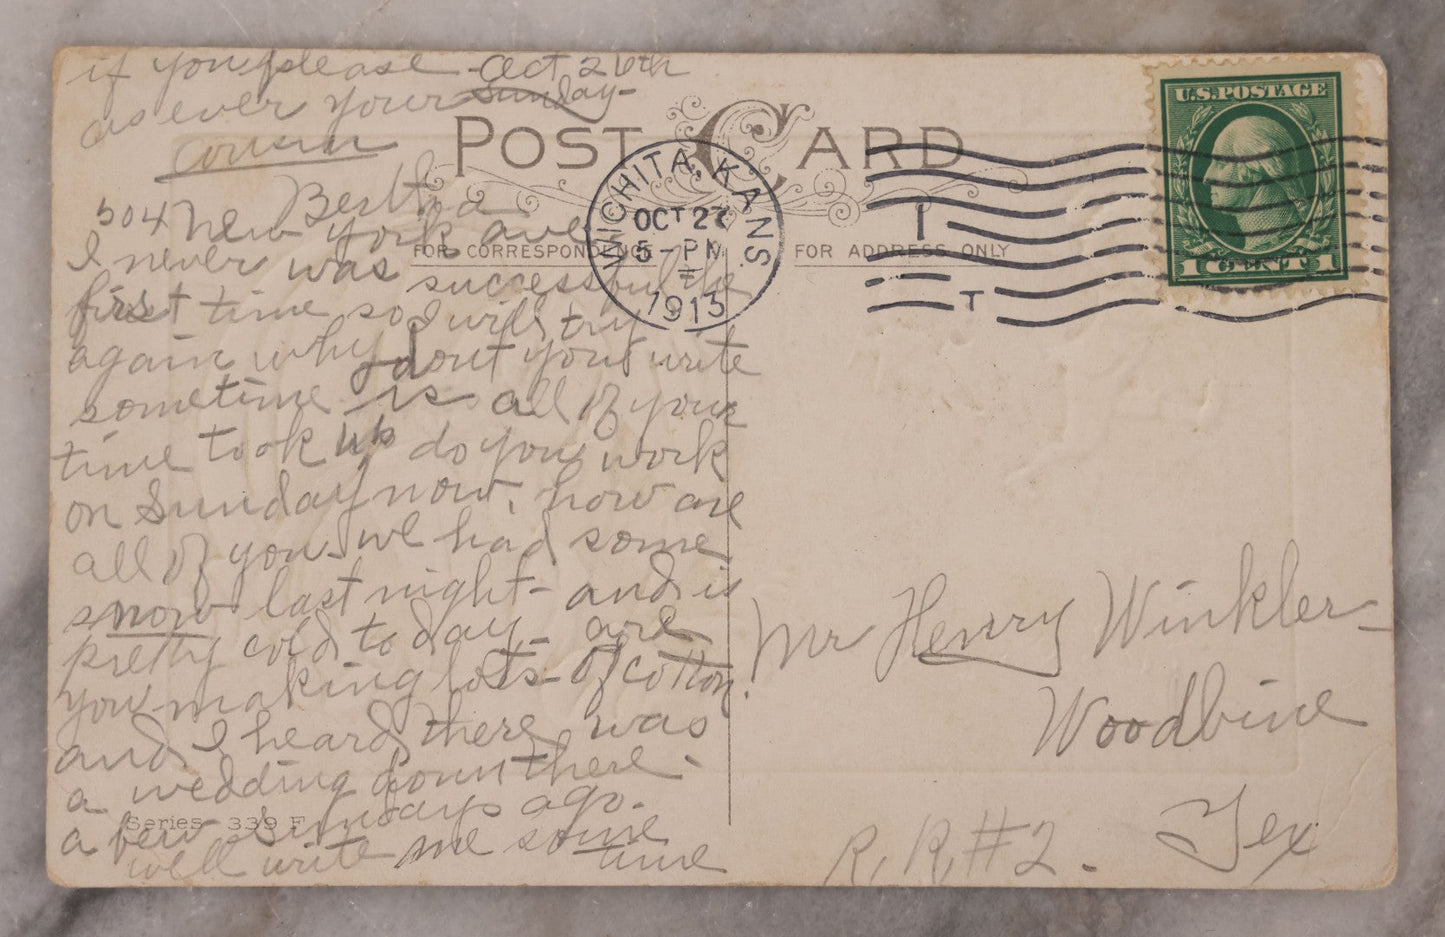 if you please Oct 26th
as ever your Sunday-
cousin
Bertha
504 New York ave
I never was successful the
first time so I will try
again why dont you write
sometime is all of your
time took up do you work
on Sunday now. how are
all of you we had some
snow last night- and is
pretty cold to day- are
you making lots- of cotton,
and I heard there was
a wedding down there-
a few Sundays ago.
well write me some
time
Series 339 F
POST CARD
FOR CORRESPONDENCE
FOR ADDRESS ONLY
WICHITA, KANS.
OCT 27
5-PM
1913
T
U.S. POSTAGE
1 CENT 1
Mr Henry Winkler-
Woodbine
Tex
R, R, #2-